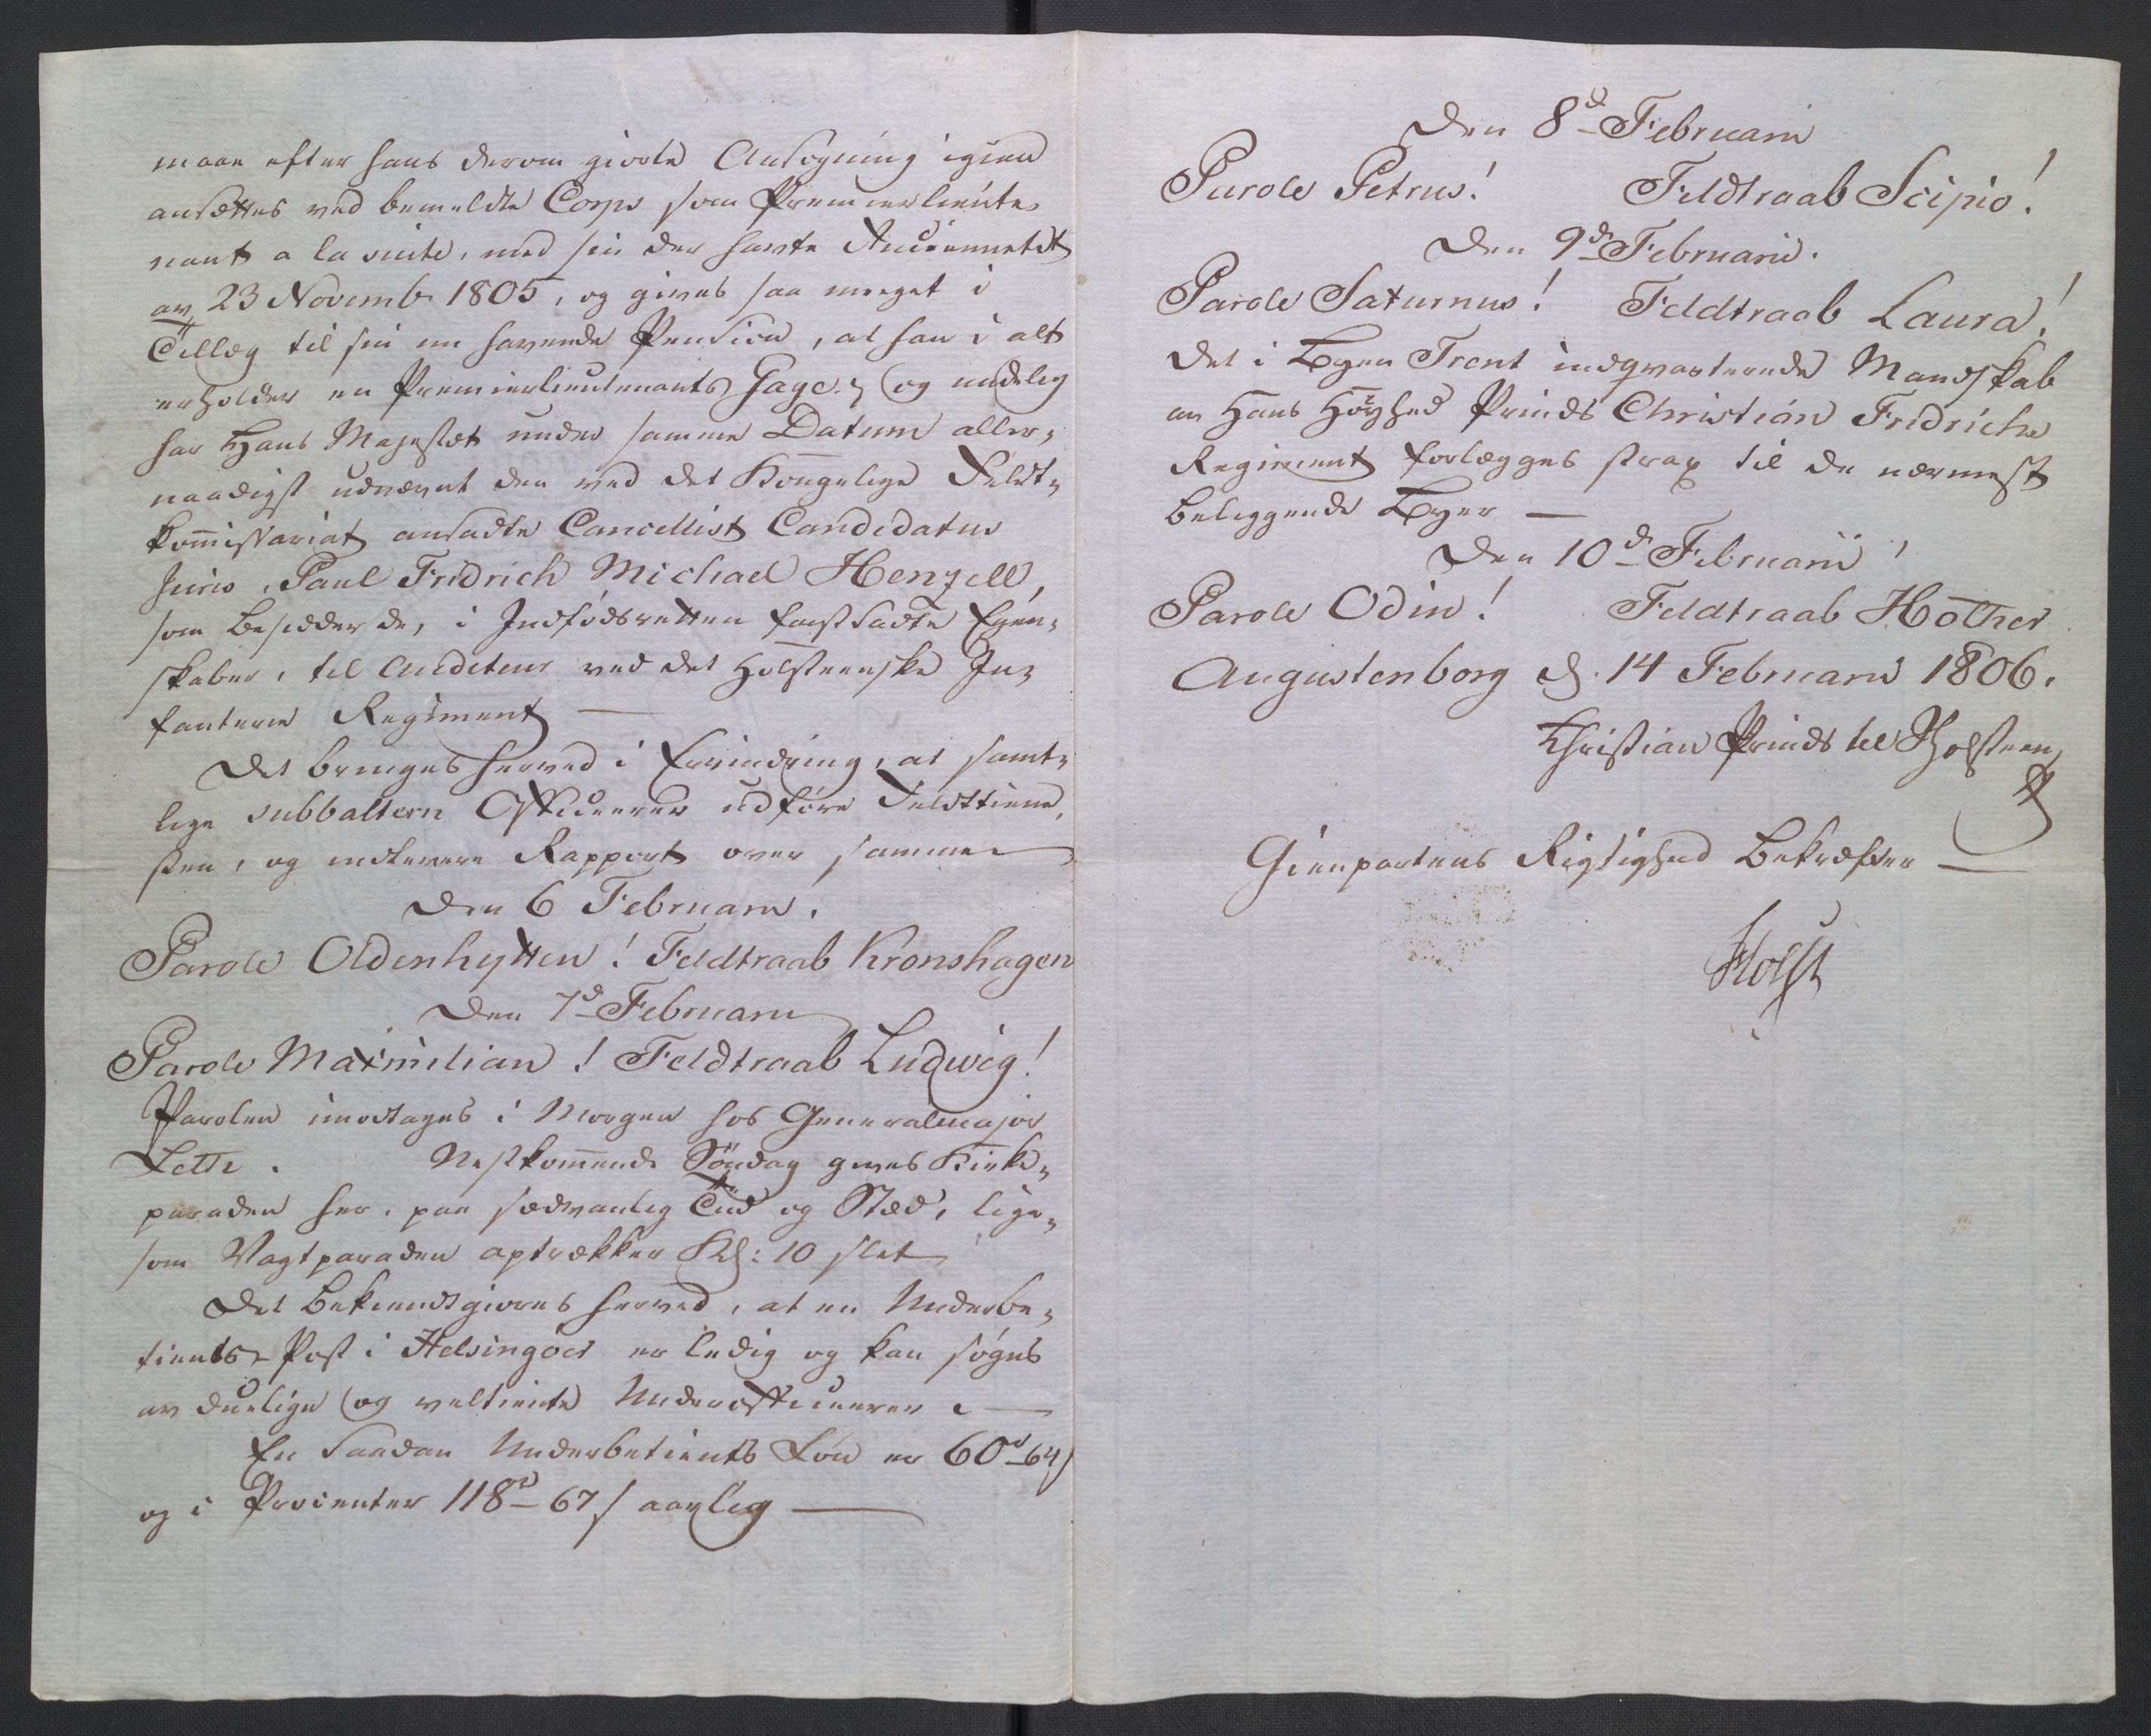 maae efter hans derom giorte Ansögning igien
ansættes ved bemeldte Corps som Premierlieute-
nant a la suite, med sin der havte Anciennetet
av 23 Novembr 1805, og gives saa meeget i
Tillæg til sin nu havende Pension, at han i alt
erholder en Premierlieutenants Gage; og endelig
har Hans Majestet under samme Datum aller-
naadigst udnævnt den ved det Kongelige Feldt-
kommissariat ansadte Cancellist Candidatus
Juris, Paul Fridrich Michael Henzell,
som besidder de, i Indfödsretten fastsadte Egen-
skaber, til Auditeur ved det Holsteenske In-
fanterie Regiment —
Det bringes herved i Erindring, at samt-
lige subbaltern Officeerer udföre Feldttiene-
sten, og indlevere Rapport over samme —
Den 6 Februarii.
Parole Oldenhytten! Feldtraab Kronshagen
Den 7d Februarii
Parole Maximilian! Feldtraab Ludwig!
Parolen imodtages i Morgen hos Generalmajor
Leth. Nestkommende Söndag gives Kirke-
paraden her, paa sædvanlig Tiid og Stæd, lige-
som Vagtparaden optrækker Kl: 10 slet
Det bekiendtgiores herved, at en Underbe-
tients Post i Helsingöer er ledig og kan søges
av duelige og veltiente Underofficeerer —
En saadan Underbetients Løn er 60rd 64s
og i Procenter 118rd 67s aarlig —
Den 8d Februarii
Parole Petrus! Feldtraab Scipio!
Den 9d Februarii.
Parole Saturnus! Feldtraab Laura!
Det i Byen Trent indqvarterede Mandskab
av Hans Höyhed Prinds Christian Fridrichs
Regiment forlægges strax til de nærmest
beliggende Byer —
Den 10d Februarii
Parole Odin! Feldtraab Hother
Augustenborg d. 14 Februarii 1806.
Christian Prinds til Holsteen
Gienpartens Rigtighed bekræfter —
Holst